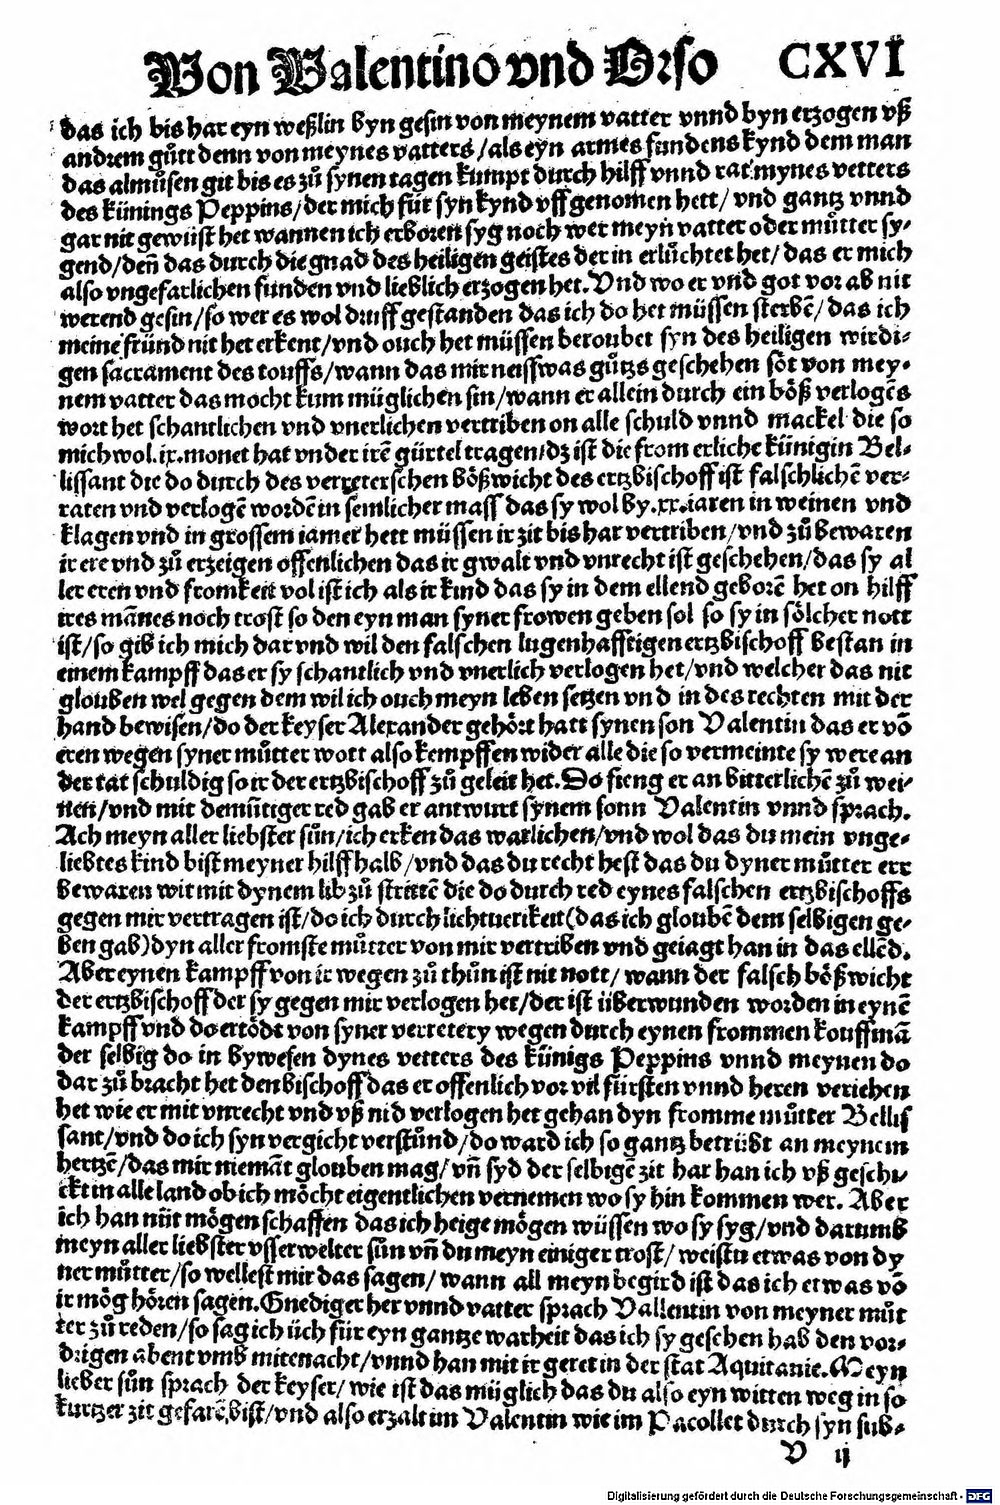 Von Valentino vnd Orso CXVI
das ich bis har eyn weßlin byn gesin von meynem vatter vnnd byn erzogen vß
andrem gůtt denn von meynes vatters / als eyn armes fundens kynd dem man
das almůsen git bis es zů synen tagen kumpt durch hilff vnnd rat mynes vetters
des künings Peppins / der mich für syn kynd vff genomen hett / vnd gantz vnnd
gar nit gewüst het wannen ich erboren syg noch wer meyn vatter oder můtter sy⸗
gend / deñ das durch die gnad des heiligen geistes der in erlüchtet het / das er mich
also vngefarlichen funden vnd lieblich erzogen het. Vnd wo er vnd got vor ab nit
werend gesin / so wer es wol druff gestanden das ich do het müssen sterbē / das ich
meine fründ nit het erkent / vnd ouch het müssen beroubet syn des heiligen wirdi⸗
gen sacrament des touffs / wann das mir neisswas gůtzs geschehen söt von mey⸗
nem vatter das mocht kum müglichen sin / wann er allein durch ein böß verlogēs
wort het schantlichen vnd vnerlichen vertriben on alle schuld vnnd mackel die so
mich wol .ix. monet hat vnder irē gürtel tragen / dz ist die from erliche künigin Bel⸗
lissant die do durch des verreterschen bößwicht des ertzbischoff ist falschlichē ver⸗
raten vnd verlogē wordē in semlicher mass das sy wol by .xx. iaren in weinen vnd
klagen vnd in grossem iamer hett müssen ir zit bis har vertriben / vnd zů bewaren
ir ere vnd zů erzeigen offenlichen das ir gwalt vnd vnrecht ist geschehen / das sy al
ler eren vnd fromkeit vol ist ich als ir kind das sy in dem ellend geborē het on hilff
ires mānes noch trost so den eyn man syner frowen geben sol so sy in sölcher nott
ist / so gib ich mich dar vnd wil den falschen lugenhafftigen ertzbischoff bestan in
einem kampff das er sy schantlich vnd vnerlich verlogen het / vnd welcher das nit
glouben wel gegen dem wil ich ouch meyn leben setzen vnd in des rechten mit der
hand bewisen / do der keyser Alexander gehört hatt synen son Valentin das er vō
eren wegen syner můtter wott also kempffen wider alle die so vermeinte sy were an
der tat schuldig so ir der ertzbischoff zů geleit het. Do fieng er an bitterlichē zů wei⸗
nen / vnd mit demůtiger red gab er antwurt synem sonn Valentin vnnd sprach.
Ach meyn aller liebster sůn / ich erken das warlichen / vnd wol das du mein vnge⸗
liebtes kind bist meyner hilff halb / vnd das du recht hest das du dyner můtter err
bewaren wit mit dynem lib zů strittē die do durch red eynes falschen ertzbischoffs
gegen mir vertragen ist / do ich durch lichtuerikeit (das ich gloubē dem selbigen ge⸗
ben gab) dyn aller fromste můtter von mir vertriben vnd geiagt han in das ellēd.
Aber eynen kampff von ir wegen zů thůn ist nit nott / wann der falsch bößwicht
der ertzbischoff der sy gegen mir verlogen het / der ist überwunden worden in eynē
kampff vnd do ertödt von syner verretery wegen durch eynen frommen kouffmā
der selbig do in bywesen dynes vetters des künigs Peppins vnnd meynen do
dar zů bracht het den bischoff das er offenlich vor vil fürsten vnnd heren veriehen
het wie er mit vnrecht vnd vß nid verlogen het gehan dyn fromme můtter Bellis
sant / vnd do ich syn vergicht verstůnd / do ward ich so gantz betrübt an meynem
hertzē / das mir niemāt glouben mag / vñ syd der selbigē zit har han ich vß geschi⸗
ckt in alle land ob ich möcht eigentlichen vernemen wo sy hin kommen wer. Aber
ich han nüt mögen schaffen das ich heige mögen wüssen wo sy syg / vnd darumb
meyn aller liebster vsserwelter sůn vñ du meyn einiger trost / weistu etwas von dy
ner můtter / so wellest mir das sagen / wann all meyn begird ist das ich etwas vō
ir mög hören sagen. Gnediger her vnnd vatter sprach Vallentin von meyner můt
ter zů reden / so sag ich üch für eyn gantze warheit das ich sy gesehen hab den vor⸗
drigen abent vmb mitenacht / vnnd han mit ir geret in der stat Aquitanie. Meyn
lieber sůn sprach der keyser / wie ist das müglich das du also eyn witten weg in so
kurtzer zit gefarē bist / vnd also erzalt im Valentin wie im Pacollet durch syn sub⸗
V ij
Digitalisierung gefördert durch die Deutsche Forschungsgemeinschaft - DFG